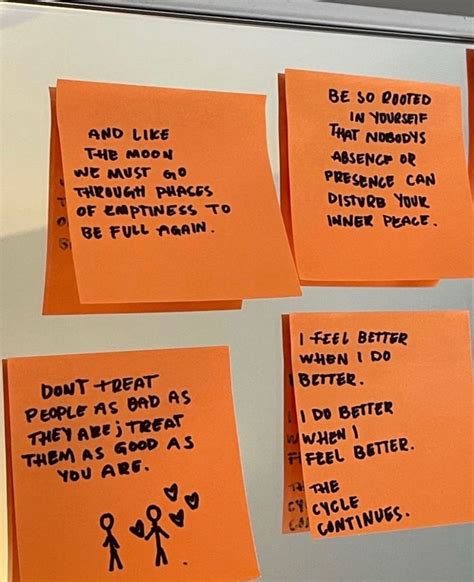 AND LIKE
THE MOON
WE MUST GO
THROUGH PHACES
OF EMPTINESS TO
BE FULL AGAIN.
BE SO ROOTED
IN YOURSELF
THAT NOBODYS
ABSENCE OR
PRESENCE CAN
DISTURB YOUR
INNER PEACE.
DONT TREAT
PEOPLE AS BAD AS
THEY ARE; TREAT
THEM AS GOOD AS
YOU ARE.
I FEEL BETTER
WHEN I DO
BETTER.
I DO BETTER
WHEN I
FEEL BETTER.
THE
CYCLE
CONTINUES.